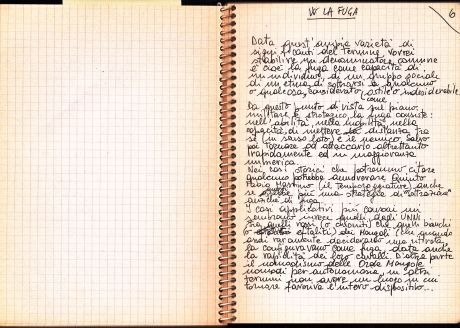 W LA FUGA
6
Data quest'ampia varietà di
significanti del termine, vorrei
stabilire un denominatore comune
e cioè la fuga come capacità di
un individuo, di un gruppo sociale
di un'etnia di sottrarsi a qualcuno
o qualcosa, considerato ostile o indesiderabile
come
Da questo punto di vista sul piano
militare e strategico, la fuga consiste
nell'abilità, nella mobilità, nella
capacità di mettere la distanza tra
sé (in senso lato) e il nemico, salvo
poi tornare ad attaccarlo altrettanto
rapidamente ed in maggioranza
numerica.
Nei casi storici che potremmo citare
qualcuno potrebbe annoverare Quinto
Fabio Massimo (il temporeggiatore) anche
se più una strategia di
anziché di fuga.
I casi applicativi più causai mi
sembrano invece quelli degli UNNI
sia quelli rossi (o cinesi) che quelli bianchi
(o eftaliti) dei Mongoli (che quando
assai raramente decidevano una ritirata
la configuravano come fuga, data anche
la rapidità dei loro cavalli. D'altra parte
il nomadismo delle Orde Mongole
nomadi per autonomasia, in altri
termini non avere un luogo in cui
tornare favoriva l'intero dispositivo...